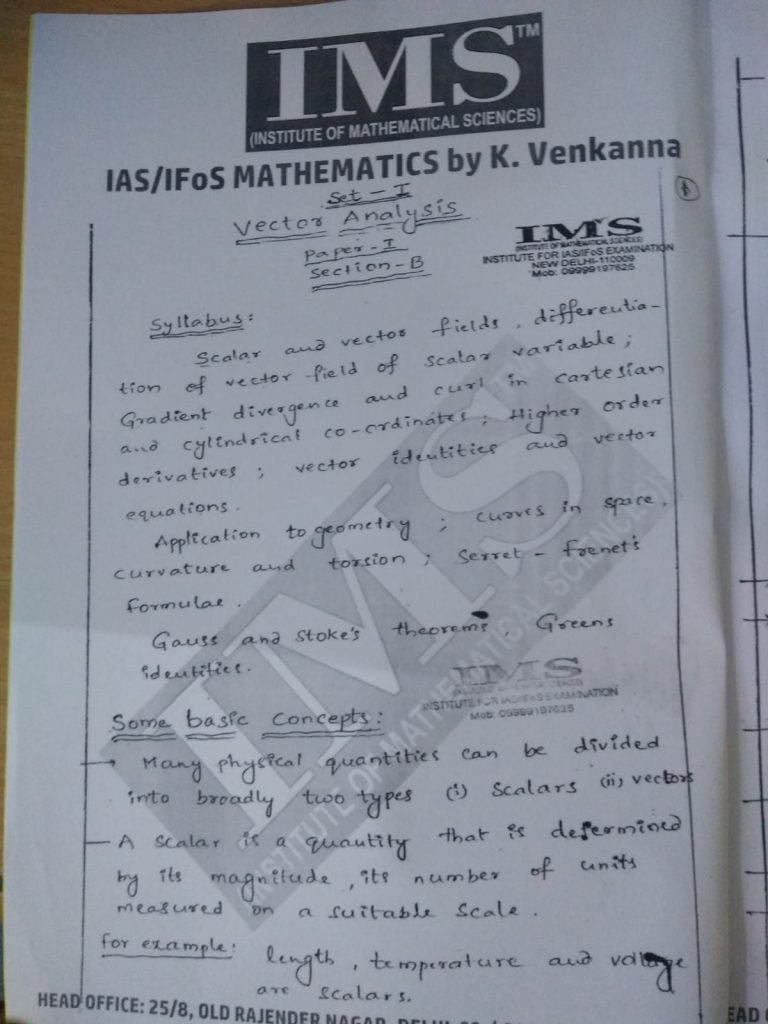 IMS™
(INSTITUTE OF MATHEMATICAL SCIENCES)
IAS/IFoS MATHEMATICS by K. Venkanna
Set - I
Vector Analysis
Paper - I
Section - B
1
IMS
(INSTITUTE OF MATHEMATICAL SCIENCES)
INSTITUTE FOR IAS/IFoS EXAMINATION
NEW DELHI-110009
Mob: 09999197625
Syllabus:
Scalar and vector fields, differentia-
tion of vector field of scalar variable;
Gradient divergence and curl in cartesian
and cylindrical co-ordinates; Higher order
derivatives; vector identities and vector
equations.
Application to geometry; curves in space,
curvature and torsion; Serret - Frenet's
formulae.
Gauss and Stoke's theorems, Greens
identities.
IMS
INSTITUTE FOR IAS/IFoS EXAMINATION
Mob: 09999197625
Some basic concepts:
→ Many physical quantities can be divided
into broadly two types (i) Scalars (ii) vectors
— A scalar is a quantity that is determined
by its magnitude, its number of units
measured on a suitable scale.
For example: length, temperature and voltage
are scalars.
IMS™
(INSTITUTE OF MATHEMATICAL SCIENCES)
HEAD OFFICE: 25/8, OLD RAJENDER NAGAR,
EAD